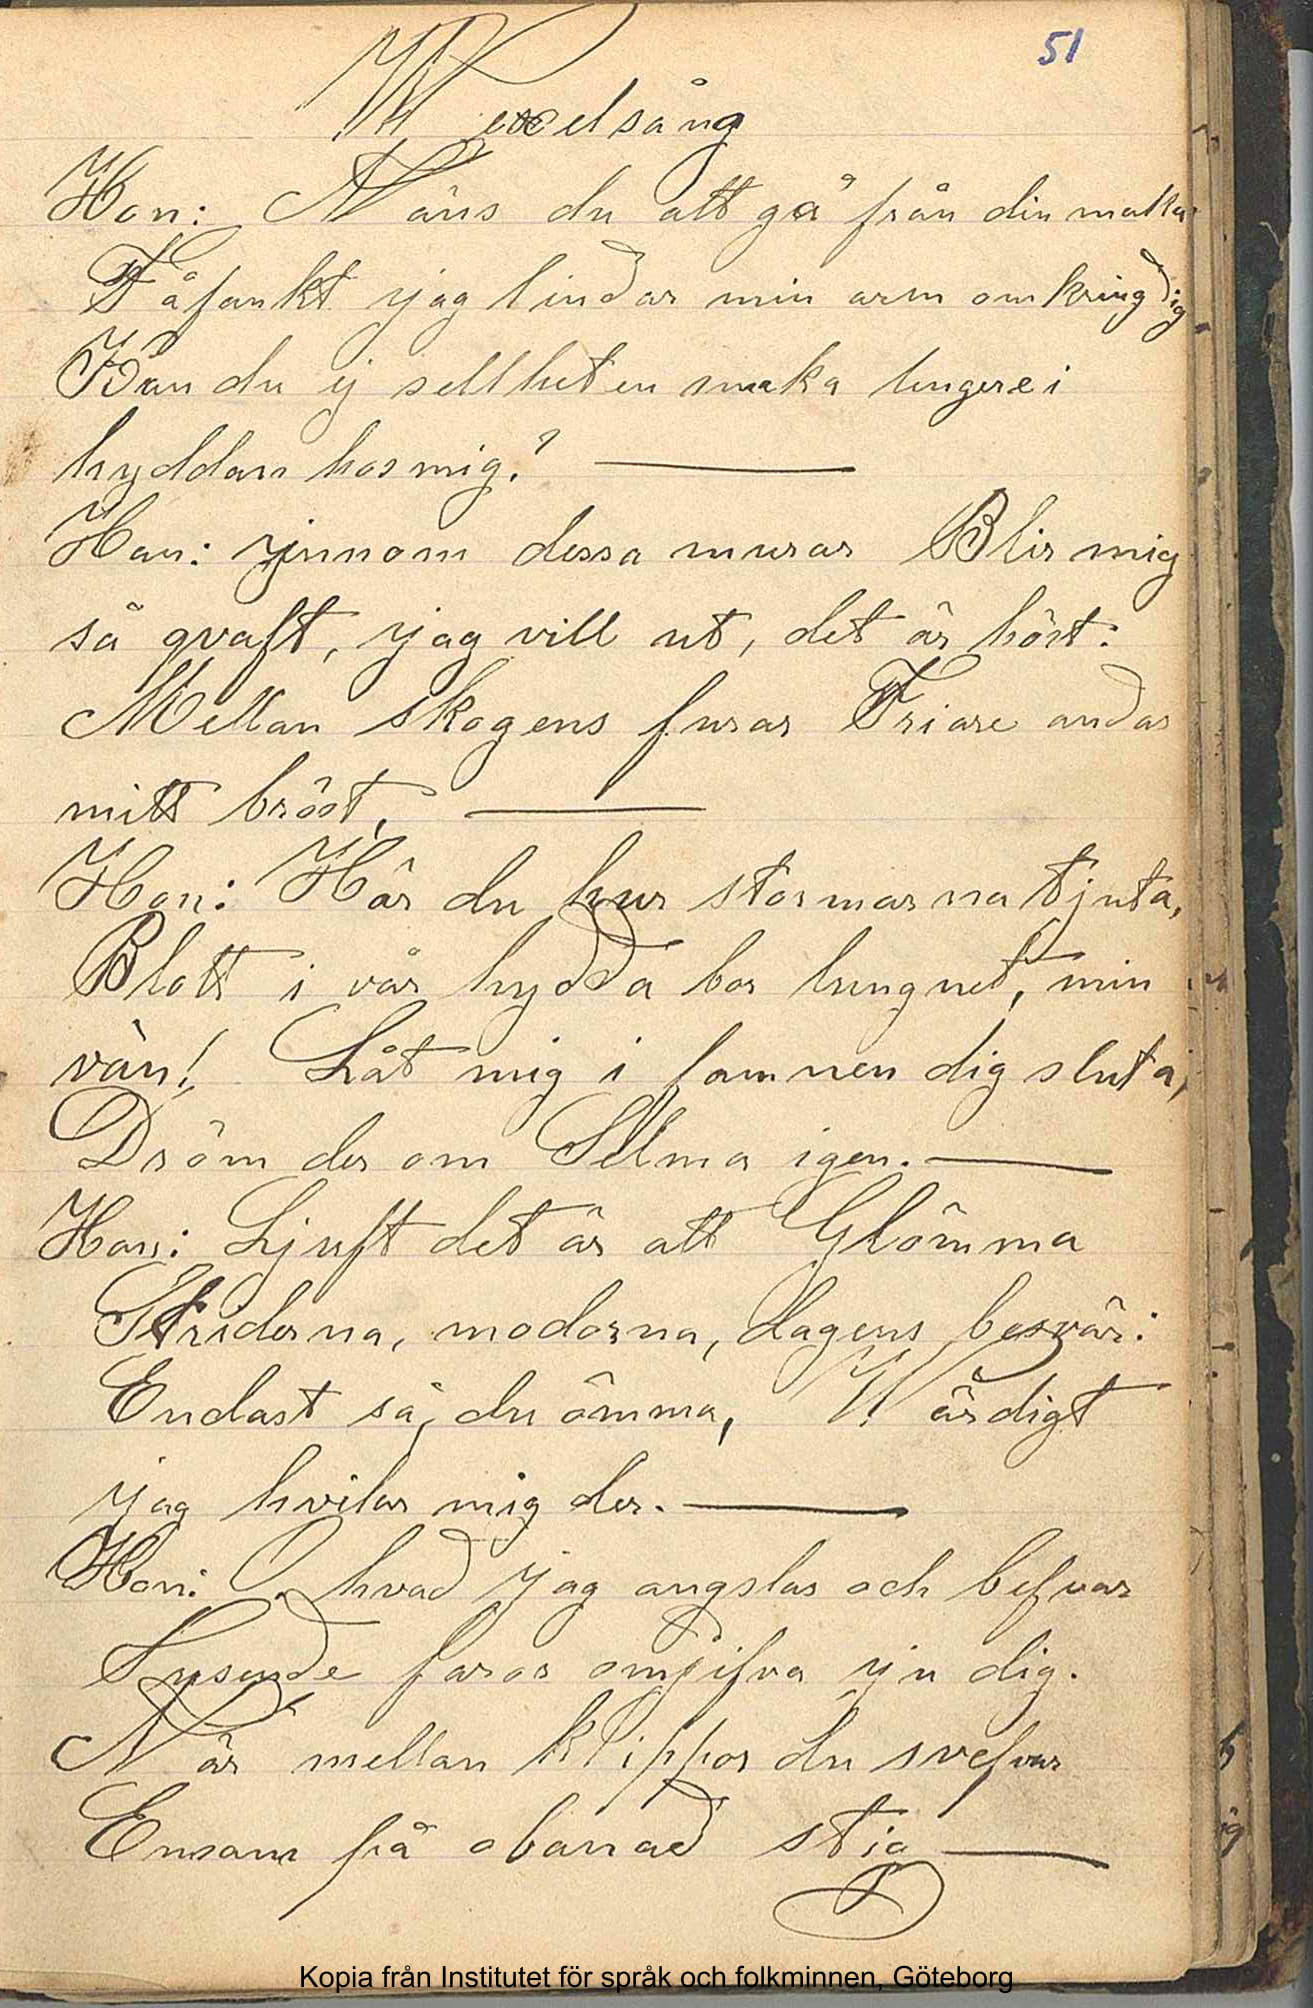 51
Wexelsång
Hon: Näns du att gå från din maka
Fåfankt yjag lindar min arm omkring dig
Kan du ej sellheten smaka lengere i
hyddan hos mig? —
Han: yjnnom dessa murar Blir mig
så qvaft, yjag vill ut, det är höst:
Mellan skogens furar Friare andas
mitt bröst, —
Hon: Hör du hur stormarna tjuta,
Blott i vår hydda bor lungnet, min
vän! Låt mig i famnen dig sluta,
Dröm der om Selma igen. —
Han: Ljuft det är att Glömma
Striderna, modorna, dagens besvär:
Endast så, du ömma, Wärdigt
yjag hvilar mig der. —
Hon: O hvad yjag angslas och befvar
Tusende faror omgifva yjn dig.
När mellan klippor du svefvar
Ensam på obanad stig —
Kopia från Institutet för språk och folkminnen, Göteborg